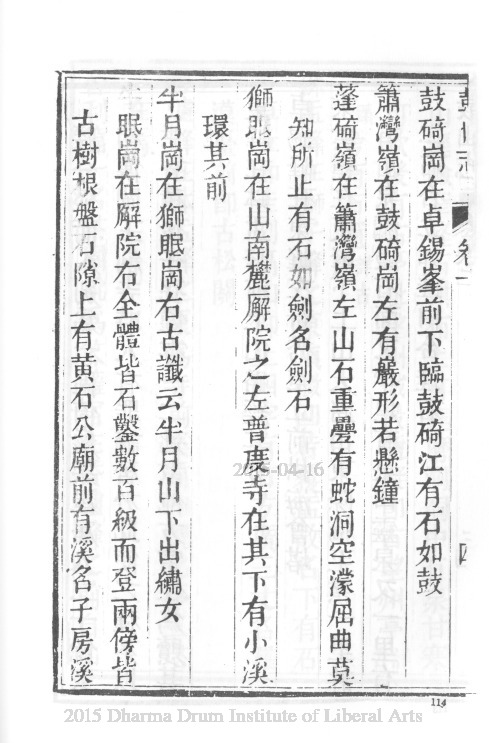 鼓碕崗在卓錫峯前下臨鼓碕江有石如鼓
簫灣嶺在鼓碕崗左有巖形若懸鐘
蓬碕嶺在簫灣嶺左山石重疊有蛇洞空濛屈曲莫
知所止有石如劍名劍石
獅眠崗在山南麓廨院之左普慶寺在其下有小溪
環其前
半月崗在獅眠崗右古讖云半月山下出繡女
眠崗在廨院右全體皆石鑿數百級而登兩傍皆
古樹根盤石隙上有黄石公廟前有溪名子房溪
卷一
四
2015-04-16
114
2015 Dharma Drum Institute of Liberal Arts